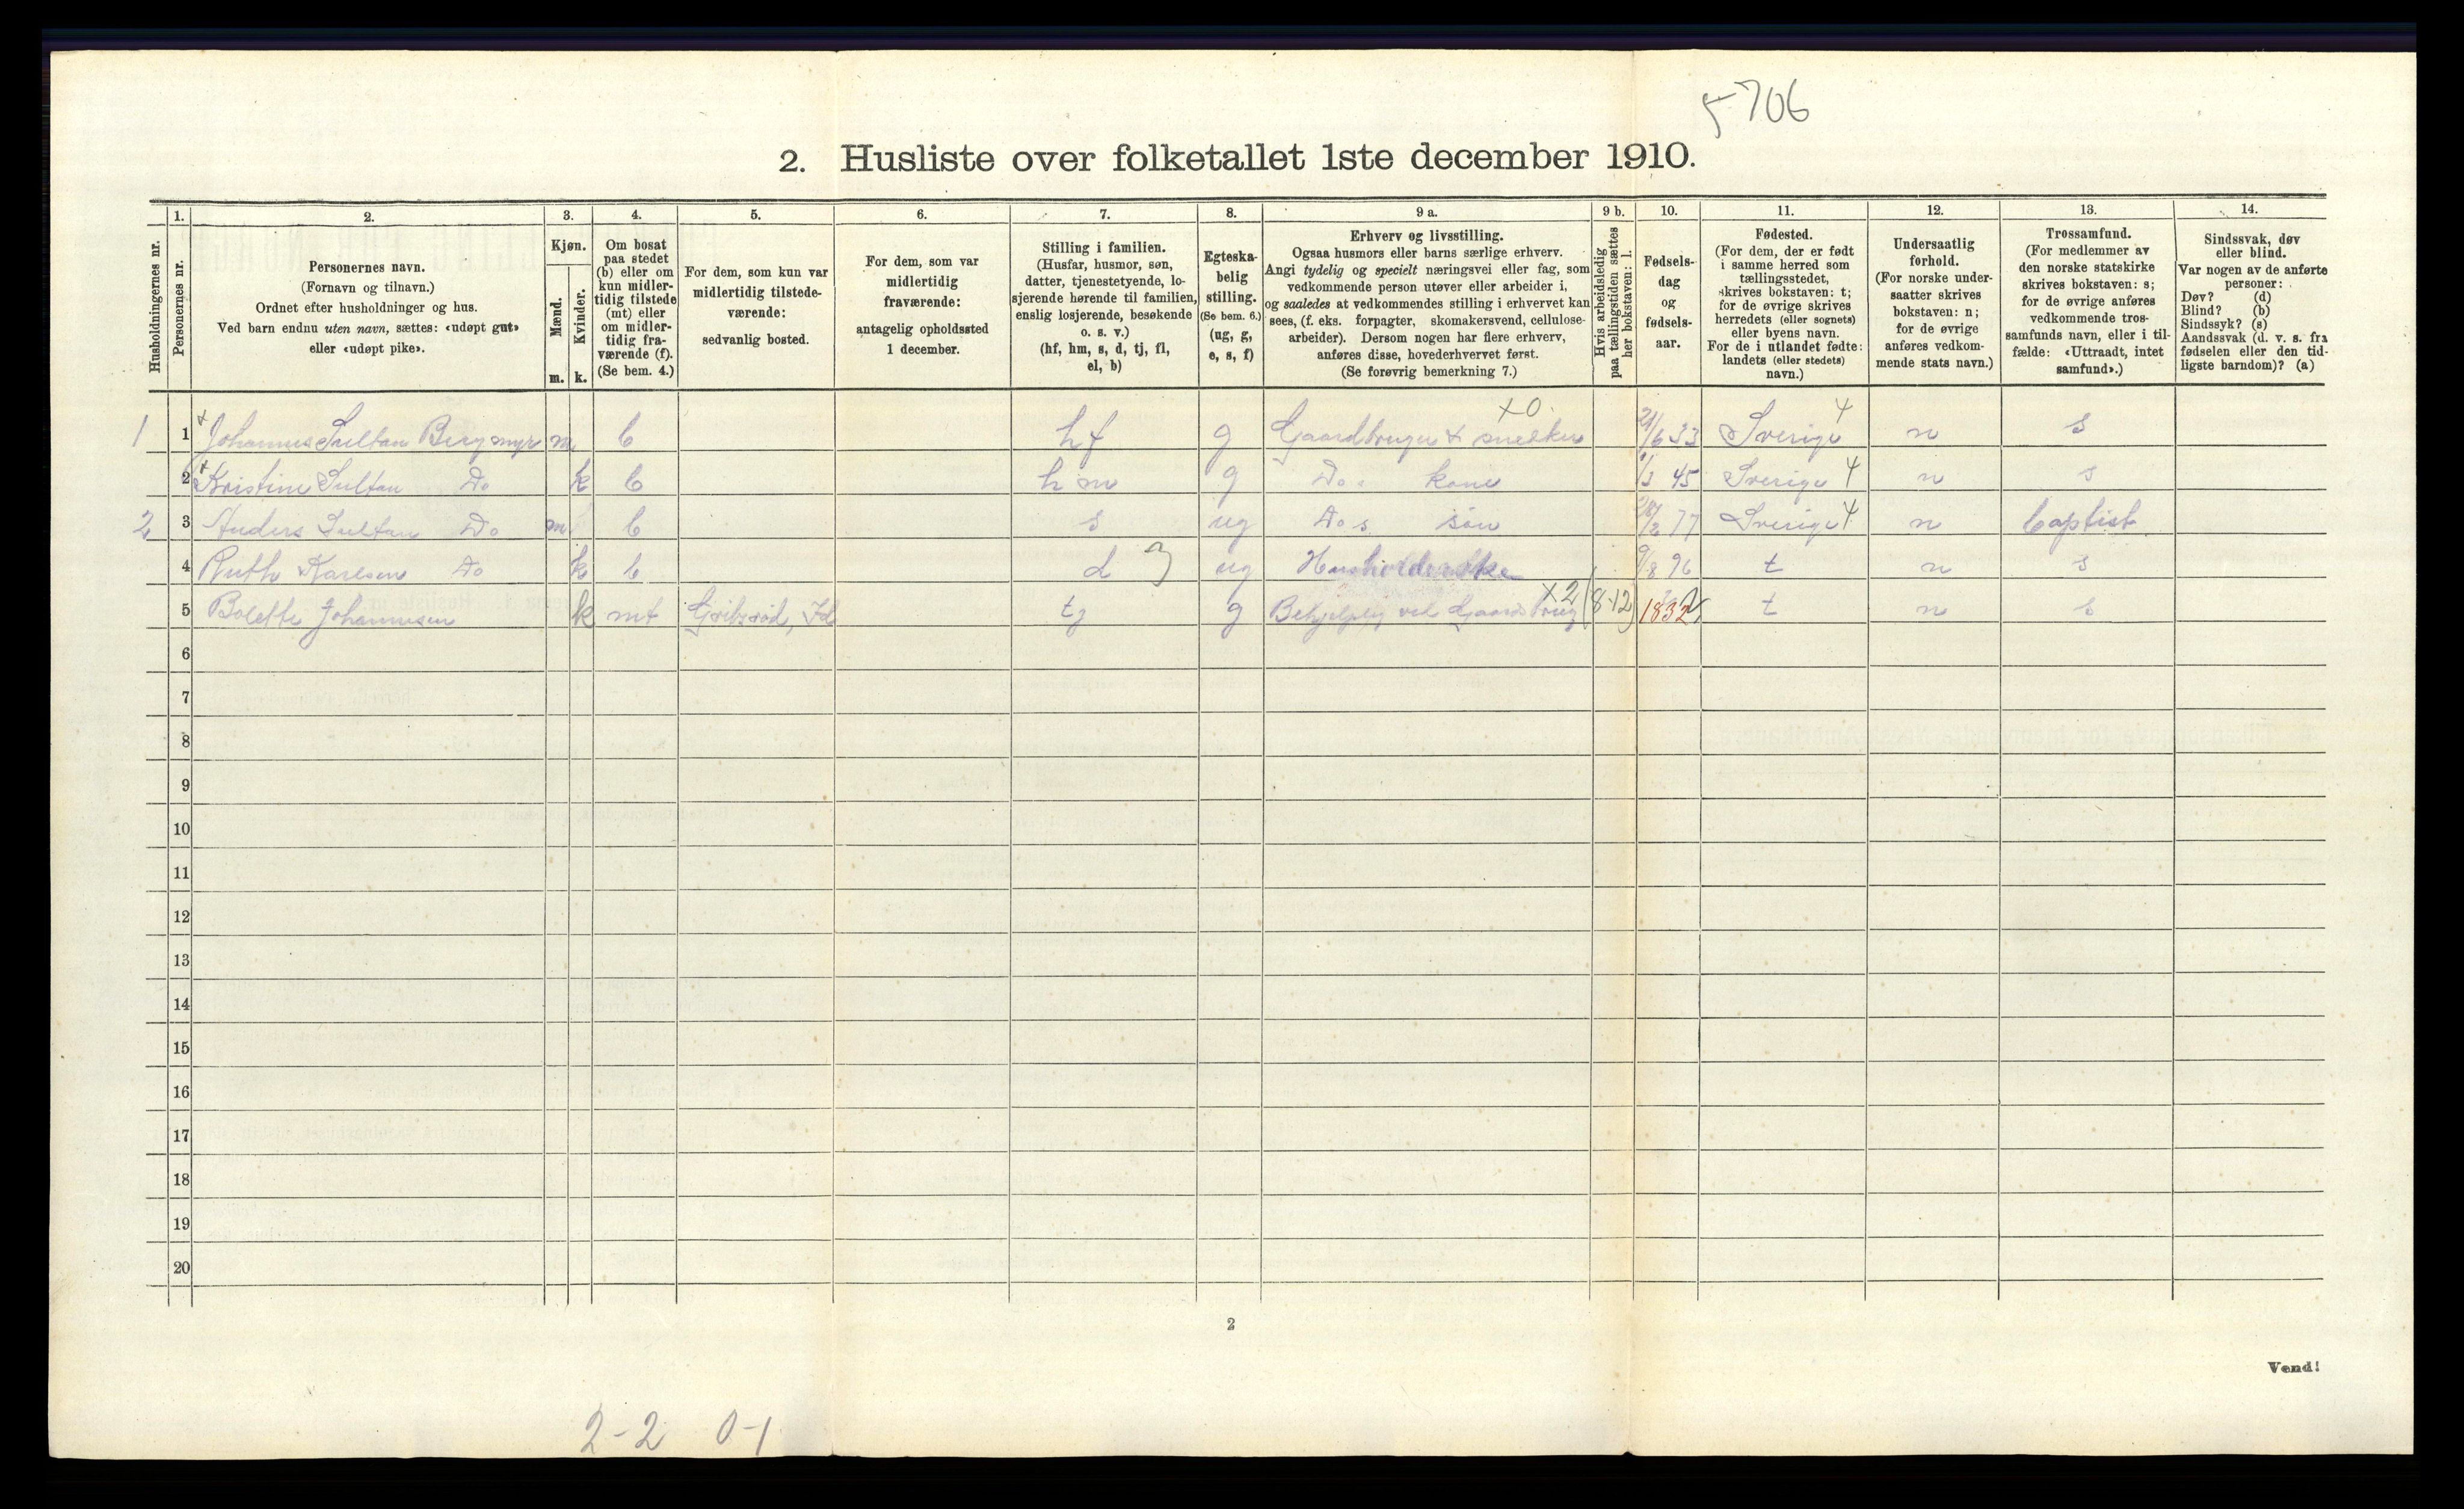 5706
2. Husliste over folketallet 1ste december 1910.
Husholdningernes nr.
1.
Personernes nr.
2.
Personernes navn.
(Fornavn og tilnavn.)
Ordnet efter husholdninger og hus.
Ved barn endnu uten navn, sættes: «udøpt gut»
eller «udøpt pike».
3.
Kjøn.
Mænd.
Kvinder.
m. k.
4.
Om bosat
paa stedet
(b) eller om
kun midler-
tidig tilstede
(mt) eller
om midler-
tidig fra-
værende (f).
(Se bem. 4.)
5.
For dem, som kun var
midlertidig tilstede-
værende:
sedvanlig bosted.
6.
For dem, som var
midlertidig
fraværende:
antagelig opholdssted
1 december.
7.
Stilling i familien.
(Husfar, husmor, søn,
datter, tjenestetyende, lo-
sjerende hørende til familien,
enslig losjerende, besøkende
o. s. v.)
(hf, hm, s, d, tj, fl,
el, b)
8.
Egteska-
belig
stilling.
(Se bem. 6.)
(ug, g,
e, s, f)
9 a.
Erhverv og livsstilling.
Ogsaa husmors eller barns særlige erhverv.
Angi tydelig og specielt næringsvei eller fag, som
vedkommende person utøver eller arbeider i,
og saaledes at vedkommendes stilling i erhvervet kan
sees, (f. eks. forpagter, skomakersvend, cellulose-
arbeider). Dersom nogen har flere erhverv,
anføres disse, hovederhvervet først.
(Se forøvrig bemerkning 7.)
9 b.
Hvis arbeidsledig
paa tællingstiden sættes
her bokstaven: l.
10.
Fødsels-
dag
og
fødsels-
aar.
11.
Fødested.
(For dem, der er født
i samme herred som
tællingsstedet,
skrives bokstaven: t;
for de øvrige skrives
herredets (eller sognets)
eller byens navn.
For de i utlandet fødte:
landets (eller stedets)
navn.)
12.
Undersaatlig
forhold.
(For norske under-
saatter skrives
bokstaven: n;
for de øvrige
anføres vedkom-
mende stats navn.)
13.
Trossamfund.
(For medlemmer av
den norske statskirke
skrives bokstaven: s;
for de øvrige anføres
vedkommende tros-
samfunds navn, eller i til-
fælde: «Uttraadt, intet
samfund».)
14.
Sindssvak, døv
eller blind.
Var nogen av de anførte
personer:
Døv? (d)
Blind? (b)
Sindssyk? (s)
Aandssvak (d. v. s. fra
fødselen eller den tid-
ligste barndom)? (a)
x0 4
1 1 Johannes Sultan Bergmyr m b hf g Gaardbruger & snekker 21/6 33 Sverige n s
2 Kristine Sultan Do k b hm g Do. kone 1/3 45 Sverige 4 n s
2 3 Anders Sultan Do m b s ug Do s søn 28/2 77 Sverige 4 n baptist
4 Ruth Karlsen Do k b d 3 ug 9/8 96 t n s
5 Bolette Johannesen k mt tj g Behjelpelig ved Gaardsbrug x2 (8-12) 1832 t n s
6
7
8
9
10
11
12
13
14
15
16
17
18
19
20
2
Vend!
2-2 0-1